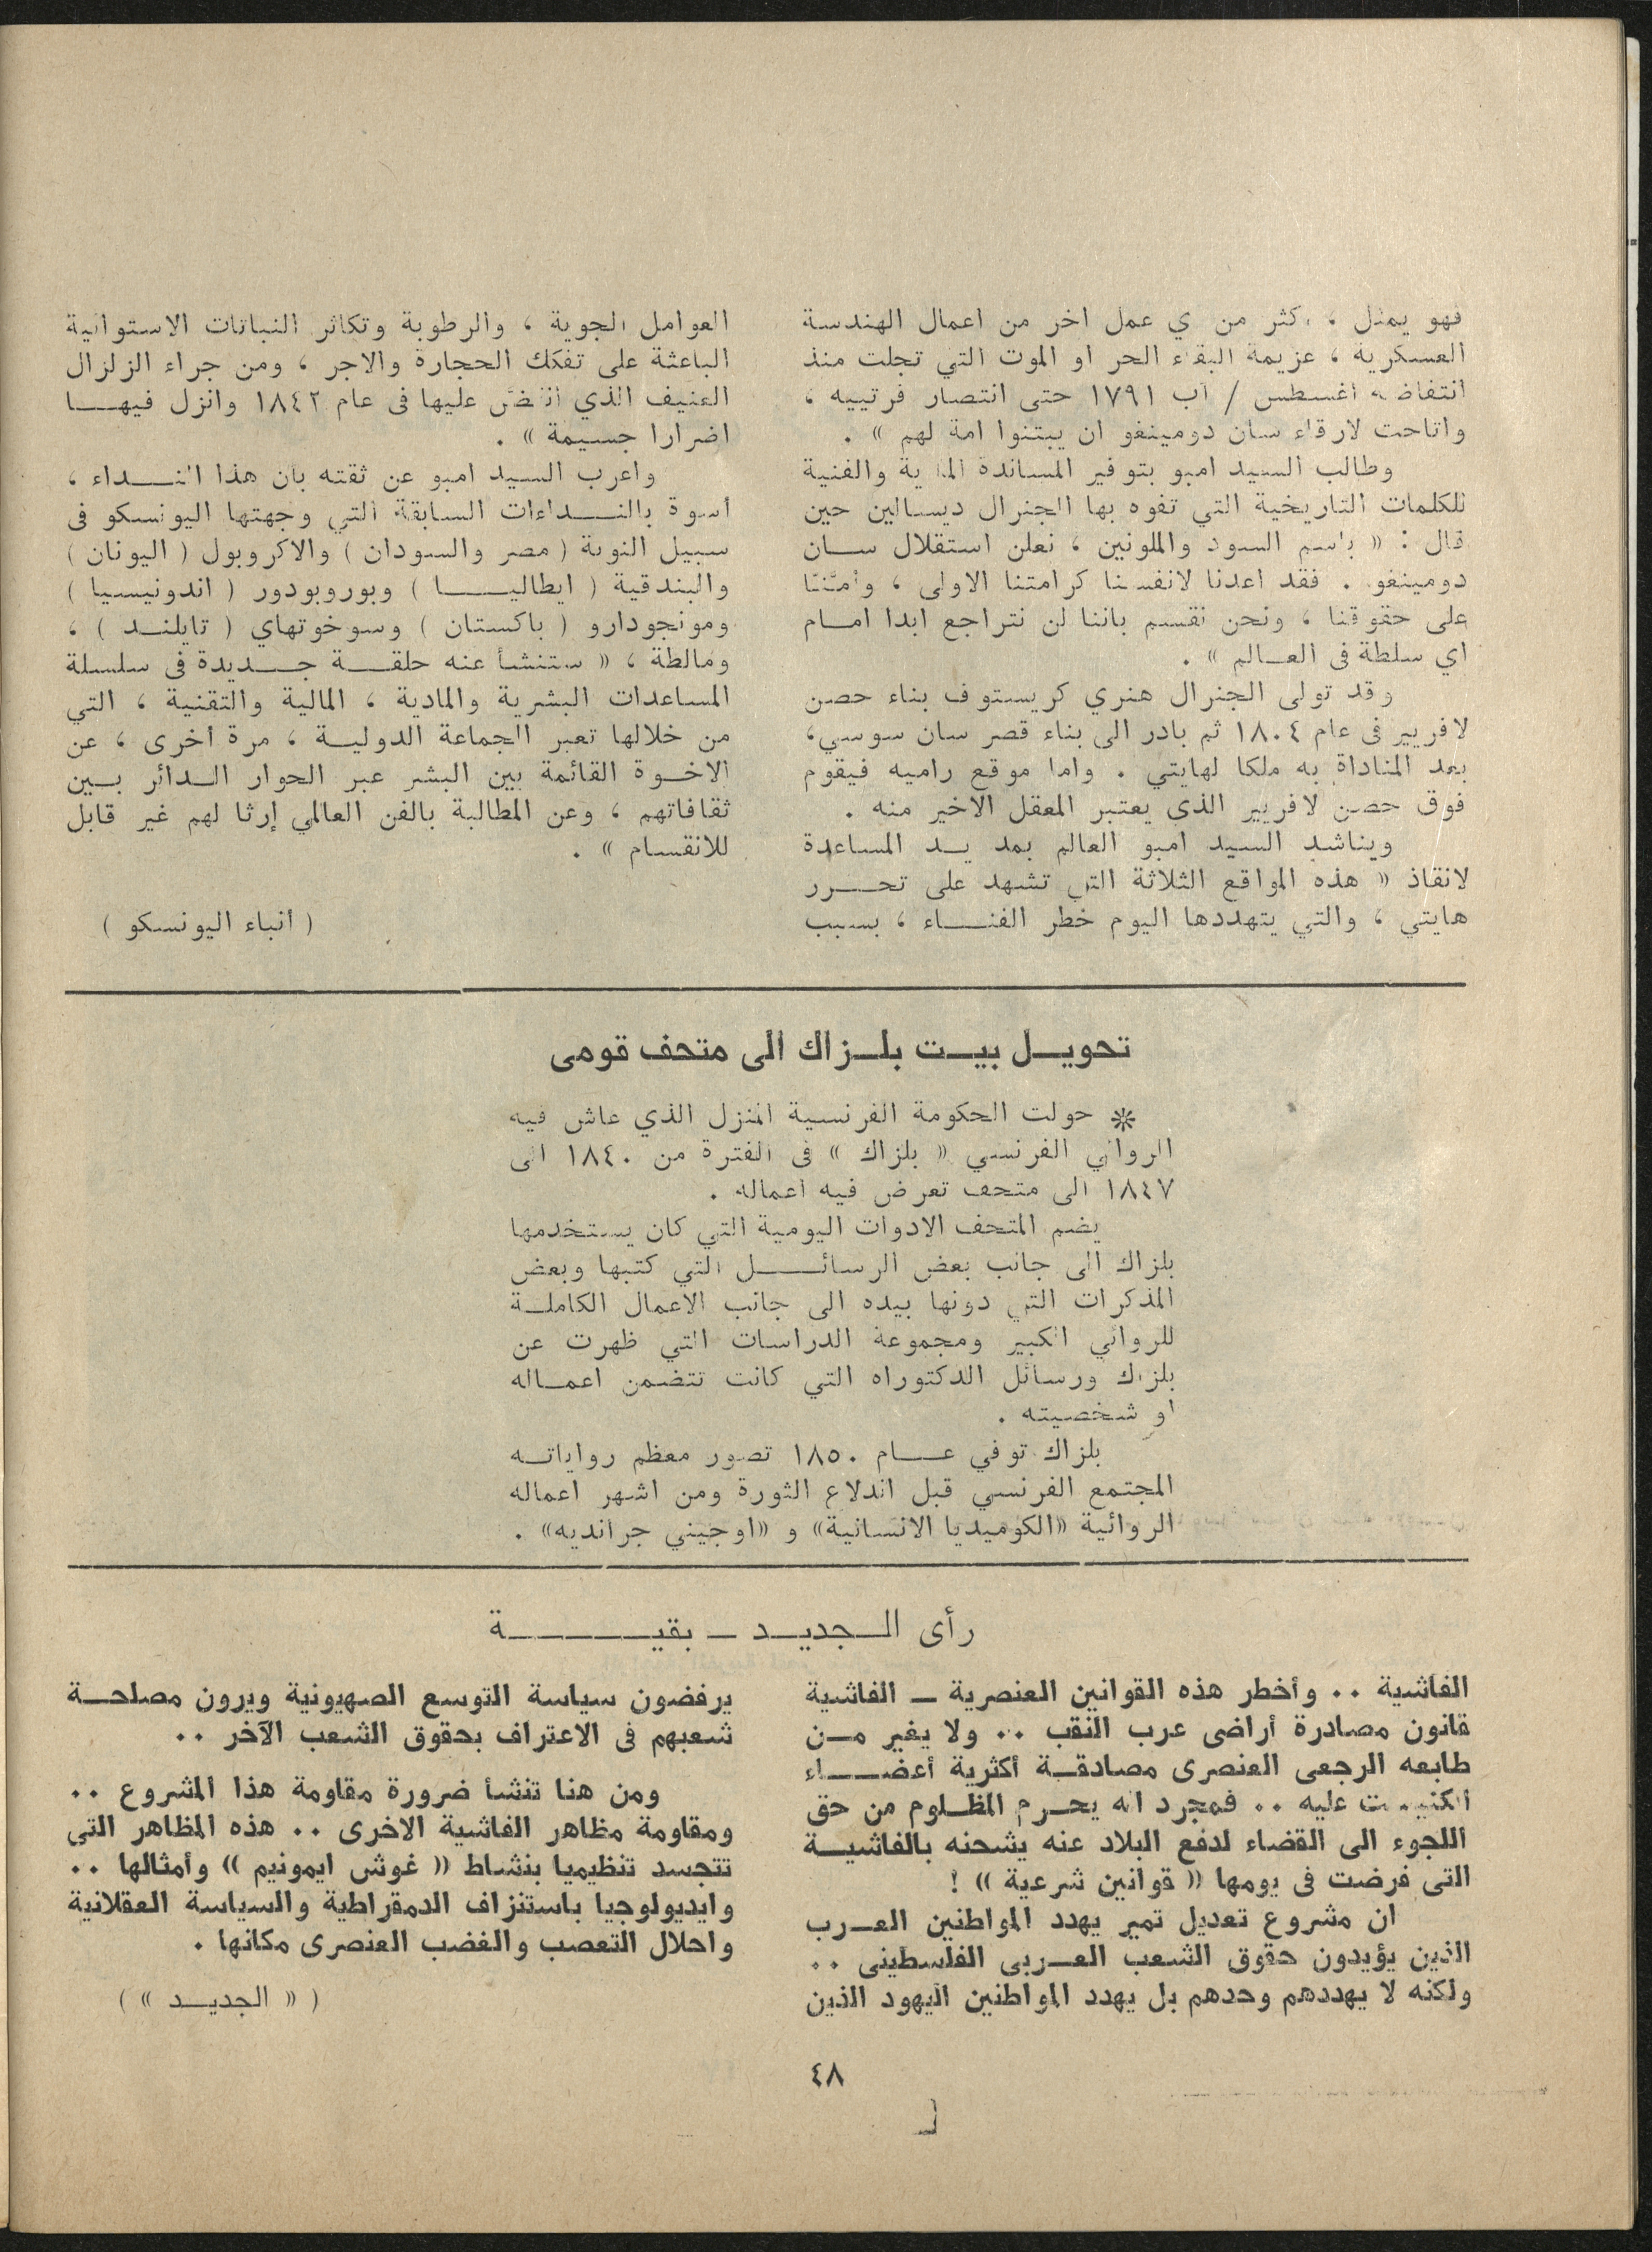 فهو يمثل ، اكثر من اي عمل اخر من اعمال الهندسة
العسكرية ، عزيمة البقاء الحر او الموت التي تجلت منذ
انتفاضة اغسطس / آب ١٧٩١ حتى انتصار فرتييه ،
واتاحت لارقاء سان دومينغو ان يبتنوا امة لهم » .
وطالب السيد امبو بتوفير المساندة المادية والفنية
للكلمات التاريخية التي تفوه بها الجنرال ديسالين حين
قال : « باسم السود والملونين ، نعلن استقلال سان
دومينغو . فقد اعدنا لانفسنا كرامتنا الاولى ، وأمّنّا
على حقوقنا ، ونحن نقسم باننا لن نتراجع ابدا امام
اي سلطة فى العالم » .
وقد تولى الجنرال هنري كريستوف بناء حصن
لافريير فى عام ١٨٠٤ ثم بادر الى بناء قصر سان سوسي،
بعد المناداة به ملكا لهايتي . واما موقع راميه فيقوم
فوق حصن لافريير الذى يعتبر المعقل الاخير منه .
ويناشد السيد امبو العالم بمد يد المساعدة
لانقاذ « هذه المواقع الثلاثة التي تشهد على تحرر
هايتي ، والتي يتهددها اليوم خطر الفناء ، بسبب
العوامل الجوية ، والرطوبة وتكاثر النباتات الاستوائية
الباعثة على تفكك الحجارة والاجر ، ومن جراء الزلزال
العنيف الذي انقضّ عليها فى عام ١٨٤٢ وانزل فيها
اضرارا جسيمة » .
واعرب السيد امبو عن ثقته بان هذا النداء ،
أسوة بالنداءات السابقة التي وجهتها اليونسكو فى
سبيل النوبة ( مصر والسودان ) والاكروبول ( اليونان )
والبندقية ( ايطاليا ) وبوروبودور ( اندونيسيا )
ومونجودارو ( باكستان ) وسوخوتهاي ( تايلند ) ،
ومالطة ، « ستنشأ عنه حلقة جديدة فى سلسلة
المساعدات البشرية والمادية ، المالية والتقنية ، التي
من خلالها تعبر الجماعة الدولية ، مرة اخرى ، عن
الاخوة القائمة بين البشر عبر الحوار الدائر بين
ثقافاتهم ، وعن المطالبة بالفن العالمي إرثا لهم غير قابل
للانقسام » .
( أنباء اليونسكو )
تحويل بيت بلزاك الى متحف قومى
※ حولت الحكومة الفرنسية المنزل الذي عاش فيه
الروائي الفرنسي « بلزاك » فى الفترة من ١٨٤٠ الى
١٨٤٧ الى متحف تعرض فيه اعماله .
يضم المتحف الادوات اليومية التي كان يستخدمها
بلزاك الى جانب بعض الرسائل التي كتبها وبعض
المذكرات التي دونها بيده الى جانب الاعمال الكاملة
للروائي الكبير ومجموعة الدراسات التي ظهرت عن
بلزاك ورسائل الدكتوراه التي كانت تتضمن اعماله
او شخصيته .
بلزاك توفي عام ١٨٥٠ تصور معظم رواياته
المجتمع الفرنسي قبل اندلاع الثورة ومن اشهر اعماله
الروائية «الكوميديا الانسانية» و «اوجيني جرانديه» .
رأى الجديد ـ بقية
الفاشية .. وأخطر هذه القوانين العنصرية ـ الفاشية
قانون مصادرة أراضى عرب النقب .. ولا يغير من
طابعه الرجعى العنصرى مصادقة أكثرية أعضاء
الكنيست عليه .. فمجرد انه يحرم المظلوم من حق
اللجوء الى القضاء لدفع البلاد عنه يشحنه بالفاشية
التى فرضت فى يومها « قوانين شرعية » !
ان مشروع تعديل تمير يهدد المواطنين العرب
الذين يؤيدون حقوق الشعب العربى الفلسطينى ..
ولكنه لا يهددهم وحدهم بل يهدد المواطنين اليهود الذين
يرفضون سياسة التوسع الصهيونية ويرون مصلحة
شعبهم فى الاعتراف بحقوق الشعب الآخر ..
ومن هنا تنشأ ضرورة مقاومة هذا المشروع ..
ومقاومة مظاهر الفاشية الاخرى .. هذه المظاهر التى
تتجسد تنظيميا بنشاط « غوش ايمونيم » وأمثالها ..
وايديولوجيا باستنزاف الدمقراطية والسياسة العقلانية
واحلال التعصب والغضب العنصرى مكانها .
( « الجديد » )
٤٨